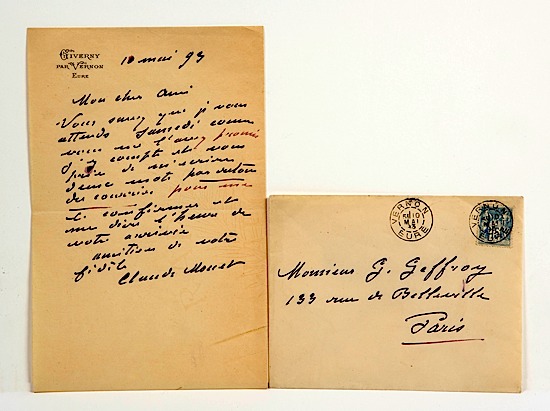 GIVERNY
PAR VERNON
EURE
10 mai 93
Mon cher Ami
Vous savez que je vous
attends Samedi comme
vous me l'avez promis
j'y compte et vous
prie de m'écrire
deux mots par retour
du courrier pour me
le confirmer et
me dire l'heure de
votre arrivée
amitiés de votre
fidèle
Claude Monet
VERNON
10
MAI
93
EURE
VERNON
EURE
Monsieur G. Geffroy
133 rue de Belleville
Paris